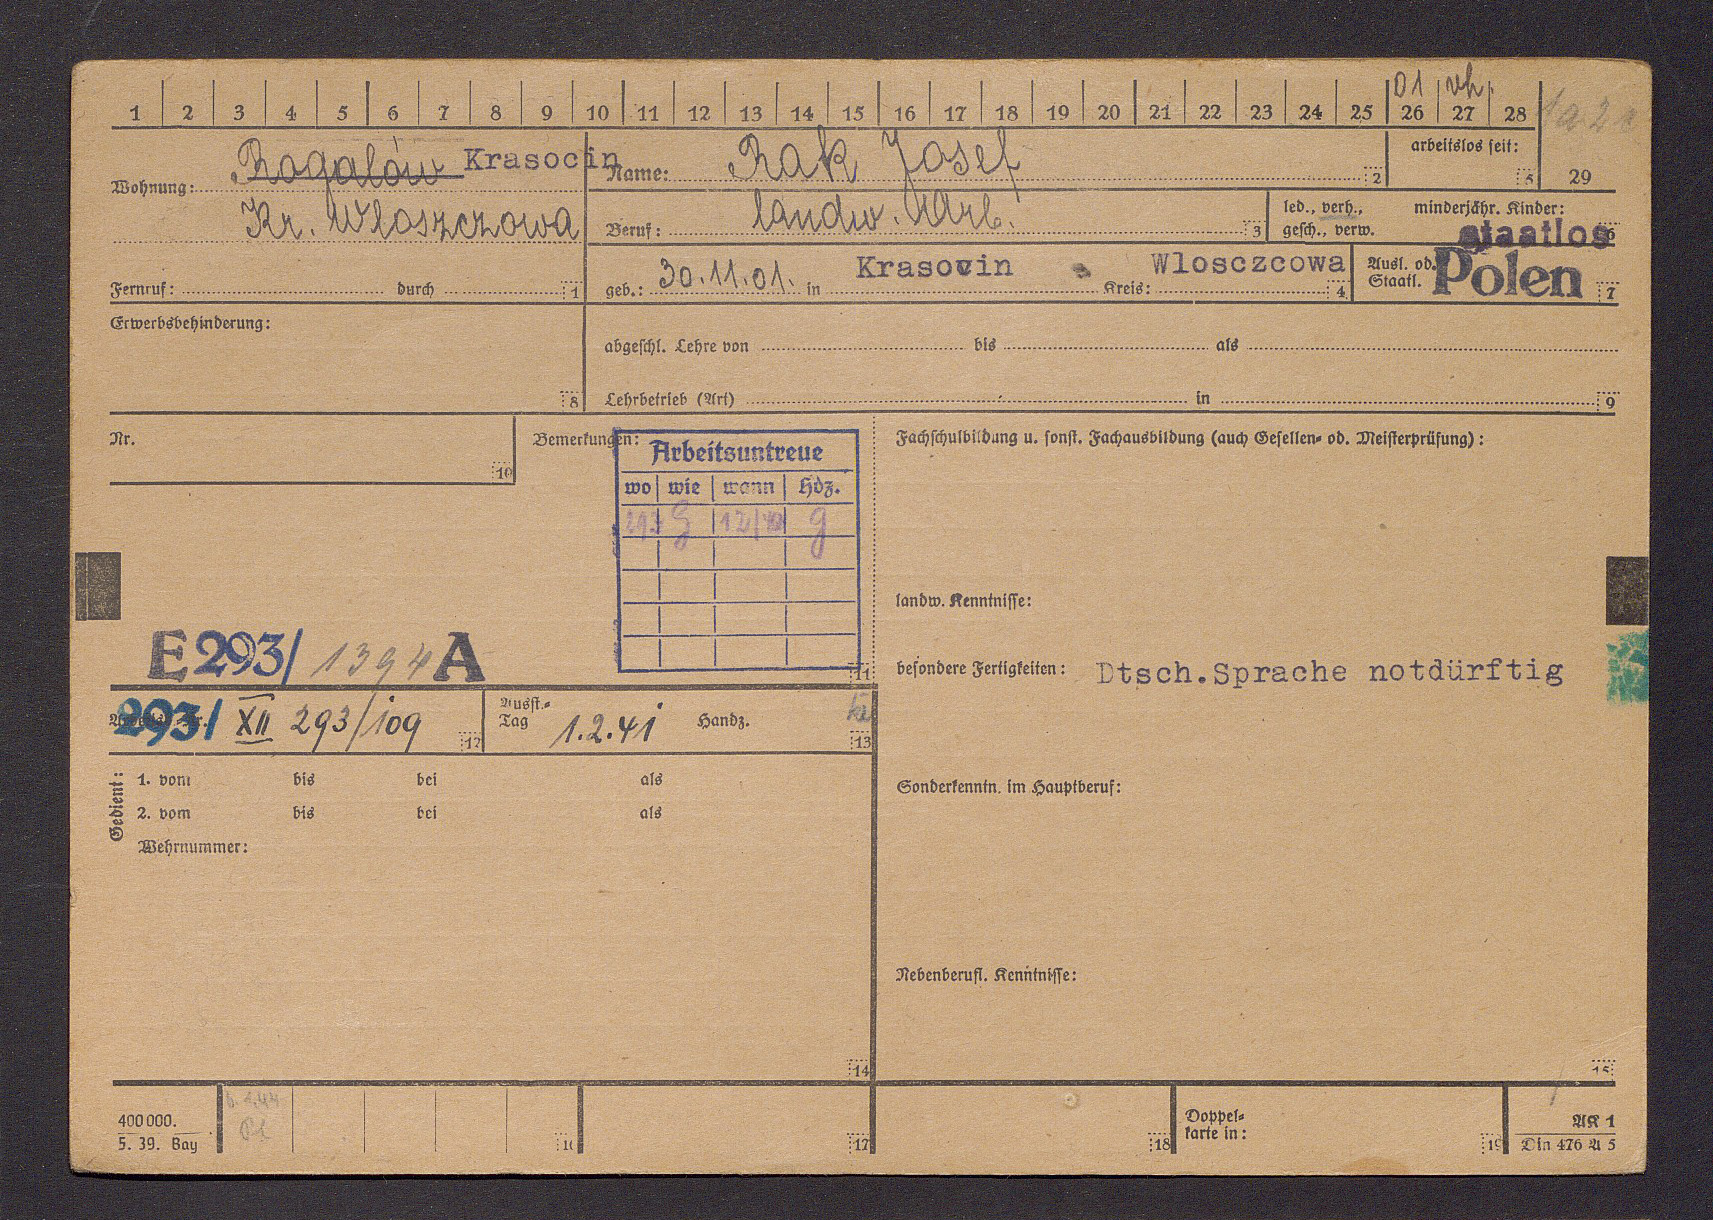 01 vh.
1 2 3 4 5 6 7 8 9 10 11 12 13 14 15 16 17 18 19 20 21 22 23 24 25 26 27 28
Wohnung: Rogalów Krasocin
Kr. Wloszczowa
Fernruf: durch 1
Name: Rak Josef 2
arbeitslos seit: 5
29
Beruf: landw. Arb. 3
led., verh., gesch., verw.
minderjähr. Kinder: 6
geb.: 30.11.01. in Krasocin Kreis: Wlosczcowa 4
staatlos
Ausl. od. Staatl. Polen 7
Erwerbsbehinderung: 8
abgeschl. Lehre von bis als
Lehrbetrieb (Art) in 9
Nr. 10
Bemerkungen:
Arbeitsuntreue
wo wie wann Hdz.
293 g 12/40 g
11
Fachschulbildung u. sonst. Fachausbildung (auch Gesellen- od. Meisterprüfung):
landw. Kenntnisse:
E 293/ 1394 A
besondere Fertigkeiten: Dtsch.Sprache notdürftig
293/ XII 293/109 12
Ausst.-Tag 1.2.41 Handz. 13
Gedient:
1. vom bis bei als
2. vom bis bei als
Wehrnummer:
14
Sonderkenntn. im Hauptberuf:
Nebenberufl. Kenntnisse:
15
400 000.
5. 39. Bay
16
17
18
Doppel-
karte in: 19
AK 1
Din 476 A 5